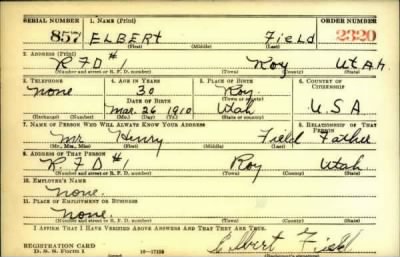 SERIAL NUMBER 1. NAME (Print) ORDER NUMBER
857 ELBERT Field 2320
(First) (Middle) (Last)
2. ADDRESS (Print)
RFD #1 Roy Utah.
(Number and street or R. F. D. number) (Town) (County) (State)
3. TELEPHONE 4. AGE IN YEARS 5. PLACE OF BIRTH 6. COUNTRY OF CITIZENSHIP
None 30 Roy
DATE OF BIRTH (Town or county)
Mar. 26 1910 Utah U.S.A
(Exchange) (Number) (Mo.) (Day) (Yr.) (State or country)
7. NAME OF PERSON WHO WILL ALWAYS KNOW YOUR ADDRESS 8. RELATIONSHIP OF THAT PERSON
Mr Henry Field Father
(Mr., Mrs., Miss) (First) (Middle) (Last)
9. ADDRESS OF THAT PERSON
RFD #1 Roy Utah.
(Number and street or R. F. D. number) (Town) (County) (State)
10. EMPLOYER'S NAME
None.
11. PLACE OF EMPLOYMENT OR BUSINESS
None.
(Number and street or R. F. D. number) (Town) (County) (State)
I AFFIRM THAT I HAVE VERIFIED ABOVE ANSWERS AND THAT THEY ARE TRUE.
REGISTRATION CARD Elbert Field
D. S. S. Form 1 (Registrant's signature)